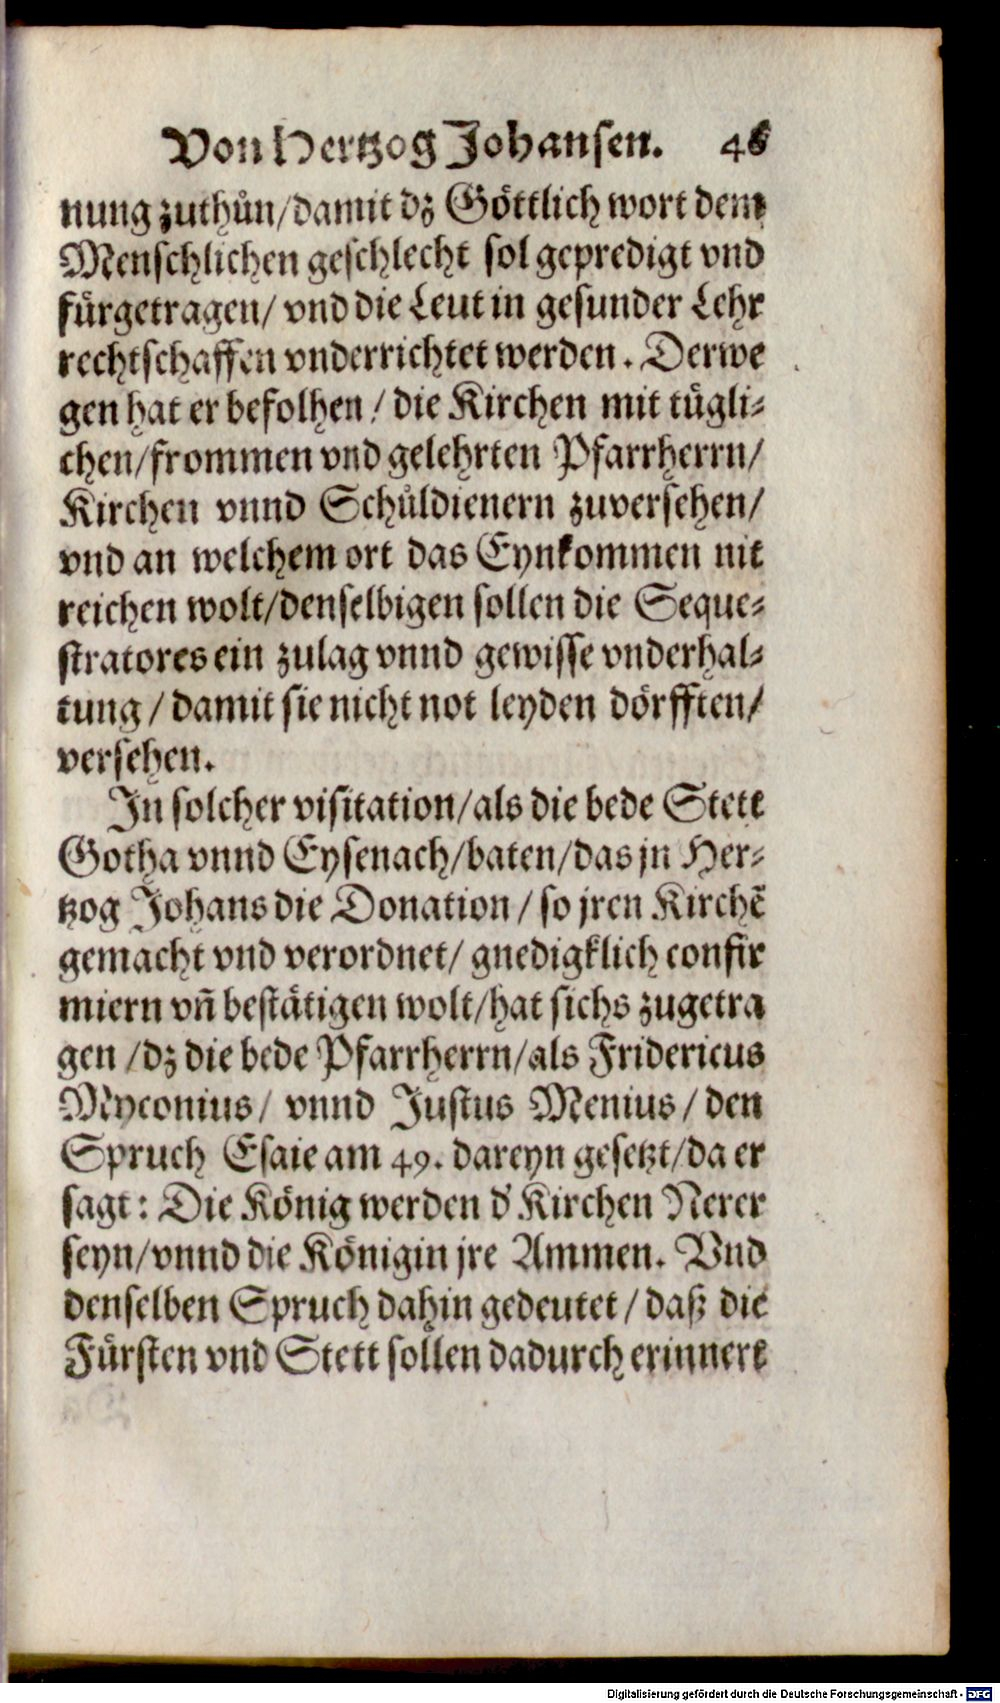 Von Hertzog Johansen. 46
nung zuthůn/damit dz Göttlich wort dem
Menschlichen geschlecht sol gepredigt vnd
fürgetragen/ vnd die Leut in gesunder Lehr
rechtschaffen vnderrichtet werden. Derwe
gen hat er befolhen/ die Kirchen mit tügli⸗
chen/frommen vnd gelehrten Pfarrherrn/
Kirchen vnnd Schůldienern zuversehen/
vnd an welchem ort das Eynkommen nit
reichen wolt/denselbigen sollen die Seque⸗
stratores ein zulag vnnd gewisse vnderhal⸗
tung/ damit sie nicht not leyden dörfften/
versehen.
In solcher visitation/als die bede Stett
Gotha vnnd Eysenach/baten/das jn Her⸗
tzog Johans die Donation/ so jren Kirchẽ
gemacht vnd verordnet/ gnedigklich confir
miern vñ bestätigen wolt/hat sichs zugetra
gen/dz die bede Pfarrherrn/als Fridericus
Myconius/ vnnd Justus Menius/ den
Spruch Esaie am 49. dareyn gesetzt/da er
sagt: Die König werden d' Kirchen Nerer
seyn/vnnd die Königin jre Ammen. Vnd
denselben Spruch dahin gedeutet/ daß die
Fürsten vnd Stett sollen dadurch erinnert
Digitalisierung gefördert durch die Deutsche Forschungsgemeinschaft - DFG